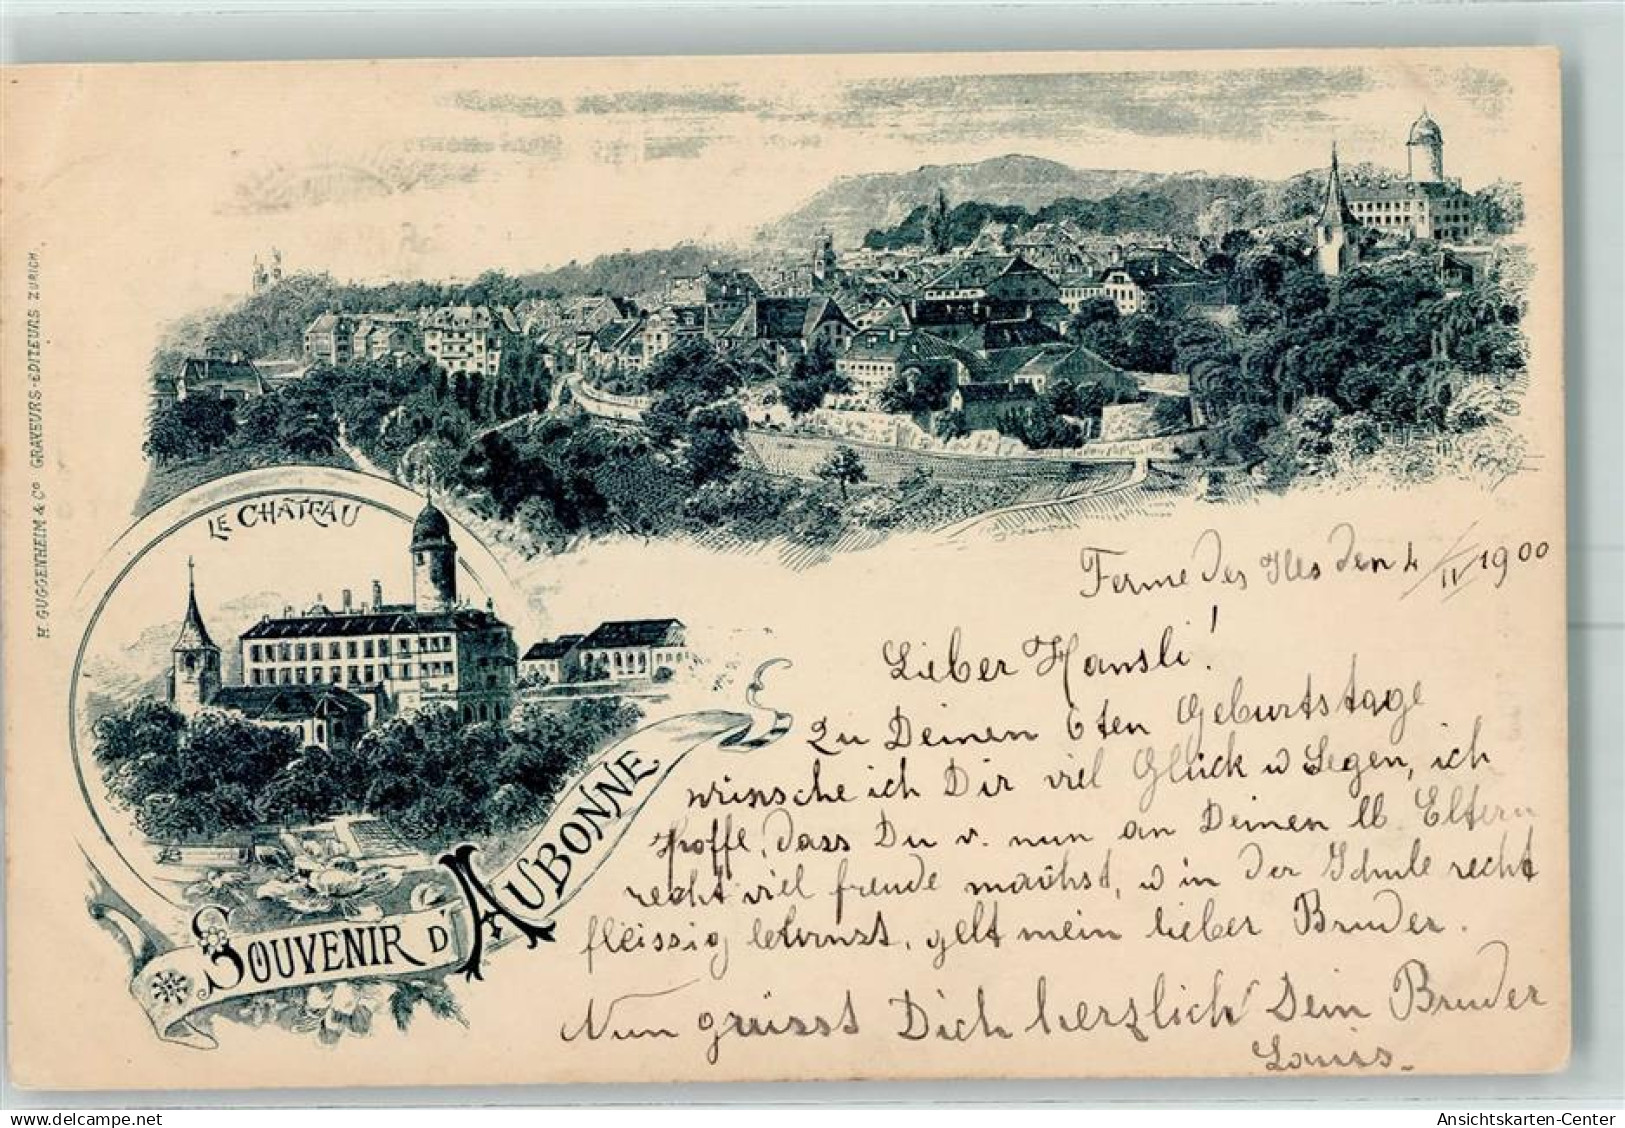 H. GUGGENHEIM & Co GRAVEURS-EDITEURS ZURICH.
LE CHÂTEAU
SOUVENIR D'AUBONNE
Ferme des Iles den 4/II 1900
Lieber Hansli!
Zu Deinen 6ten Geburtstage
wünsche ich Dir viel Glück u Segen, ich
hoffe, dass Du v. nun an Deinen lb. Eltern
recht viel freude machst, u in der Schule recht
fleissig lernst, gelt mein lieber Bruder.
Nun grüsst Dich herzlich Dein Bruder
Louis.
Ansichtskarten-Center